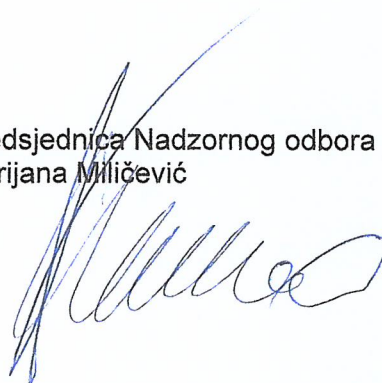 edsjednica Nadzornog odbora
rijana Miličević